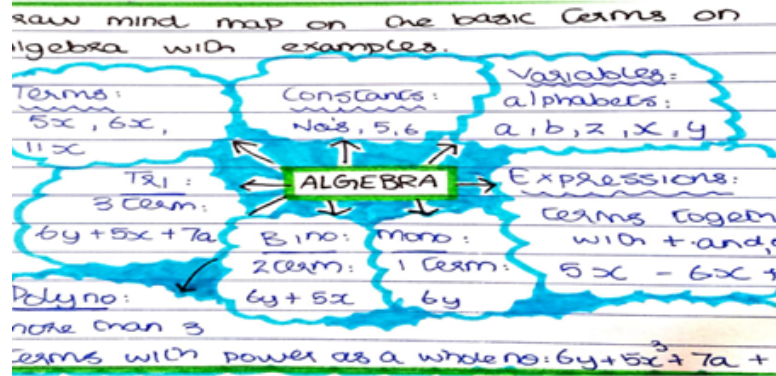 raw mind map on the basic terms on
lgebra with examples.
Terms:
5x, 6x,
11x
Constants:
No's, 5, 6
Variables:
alphabets:
a, b, z, x, y
Tri:
3 term:
6y + 5x + 7a
ALGEBRA
Expressions:
terms togeth
with + and,
5x - 6x +
Bino:
2 term:
6y + 5x
Mono:
1 term:
6y
Polyno:
more than 3
terms with power as a whole no: 6y + 5x³ + 7a +